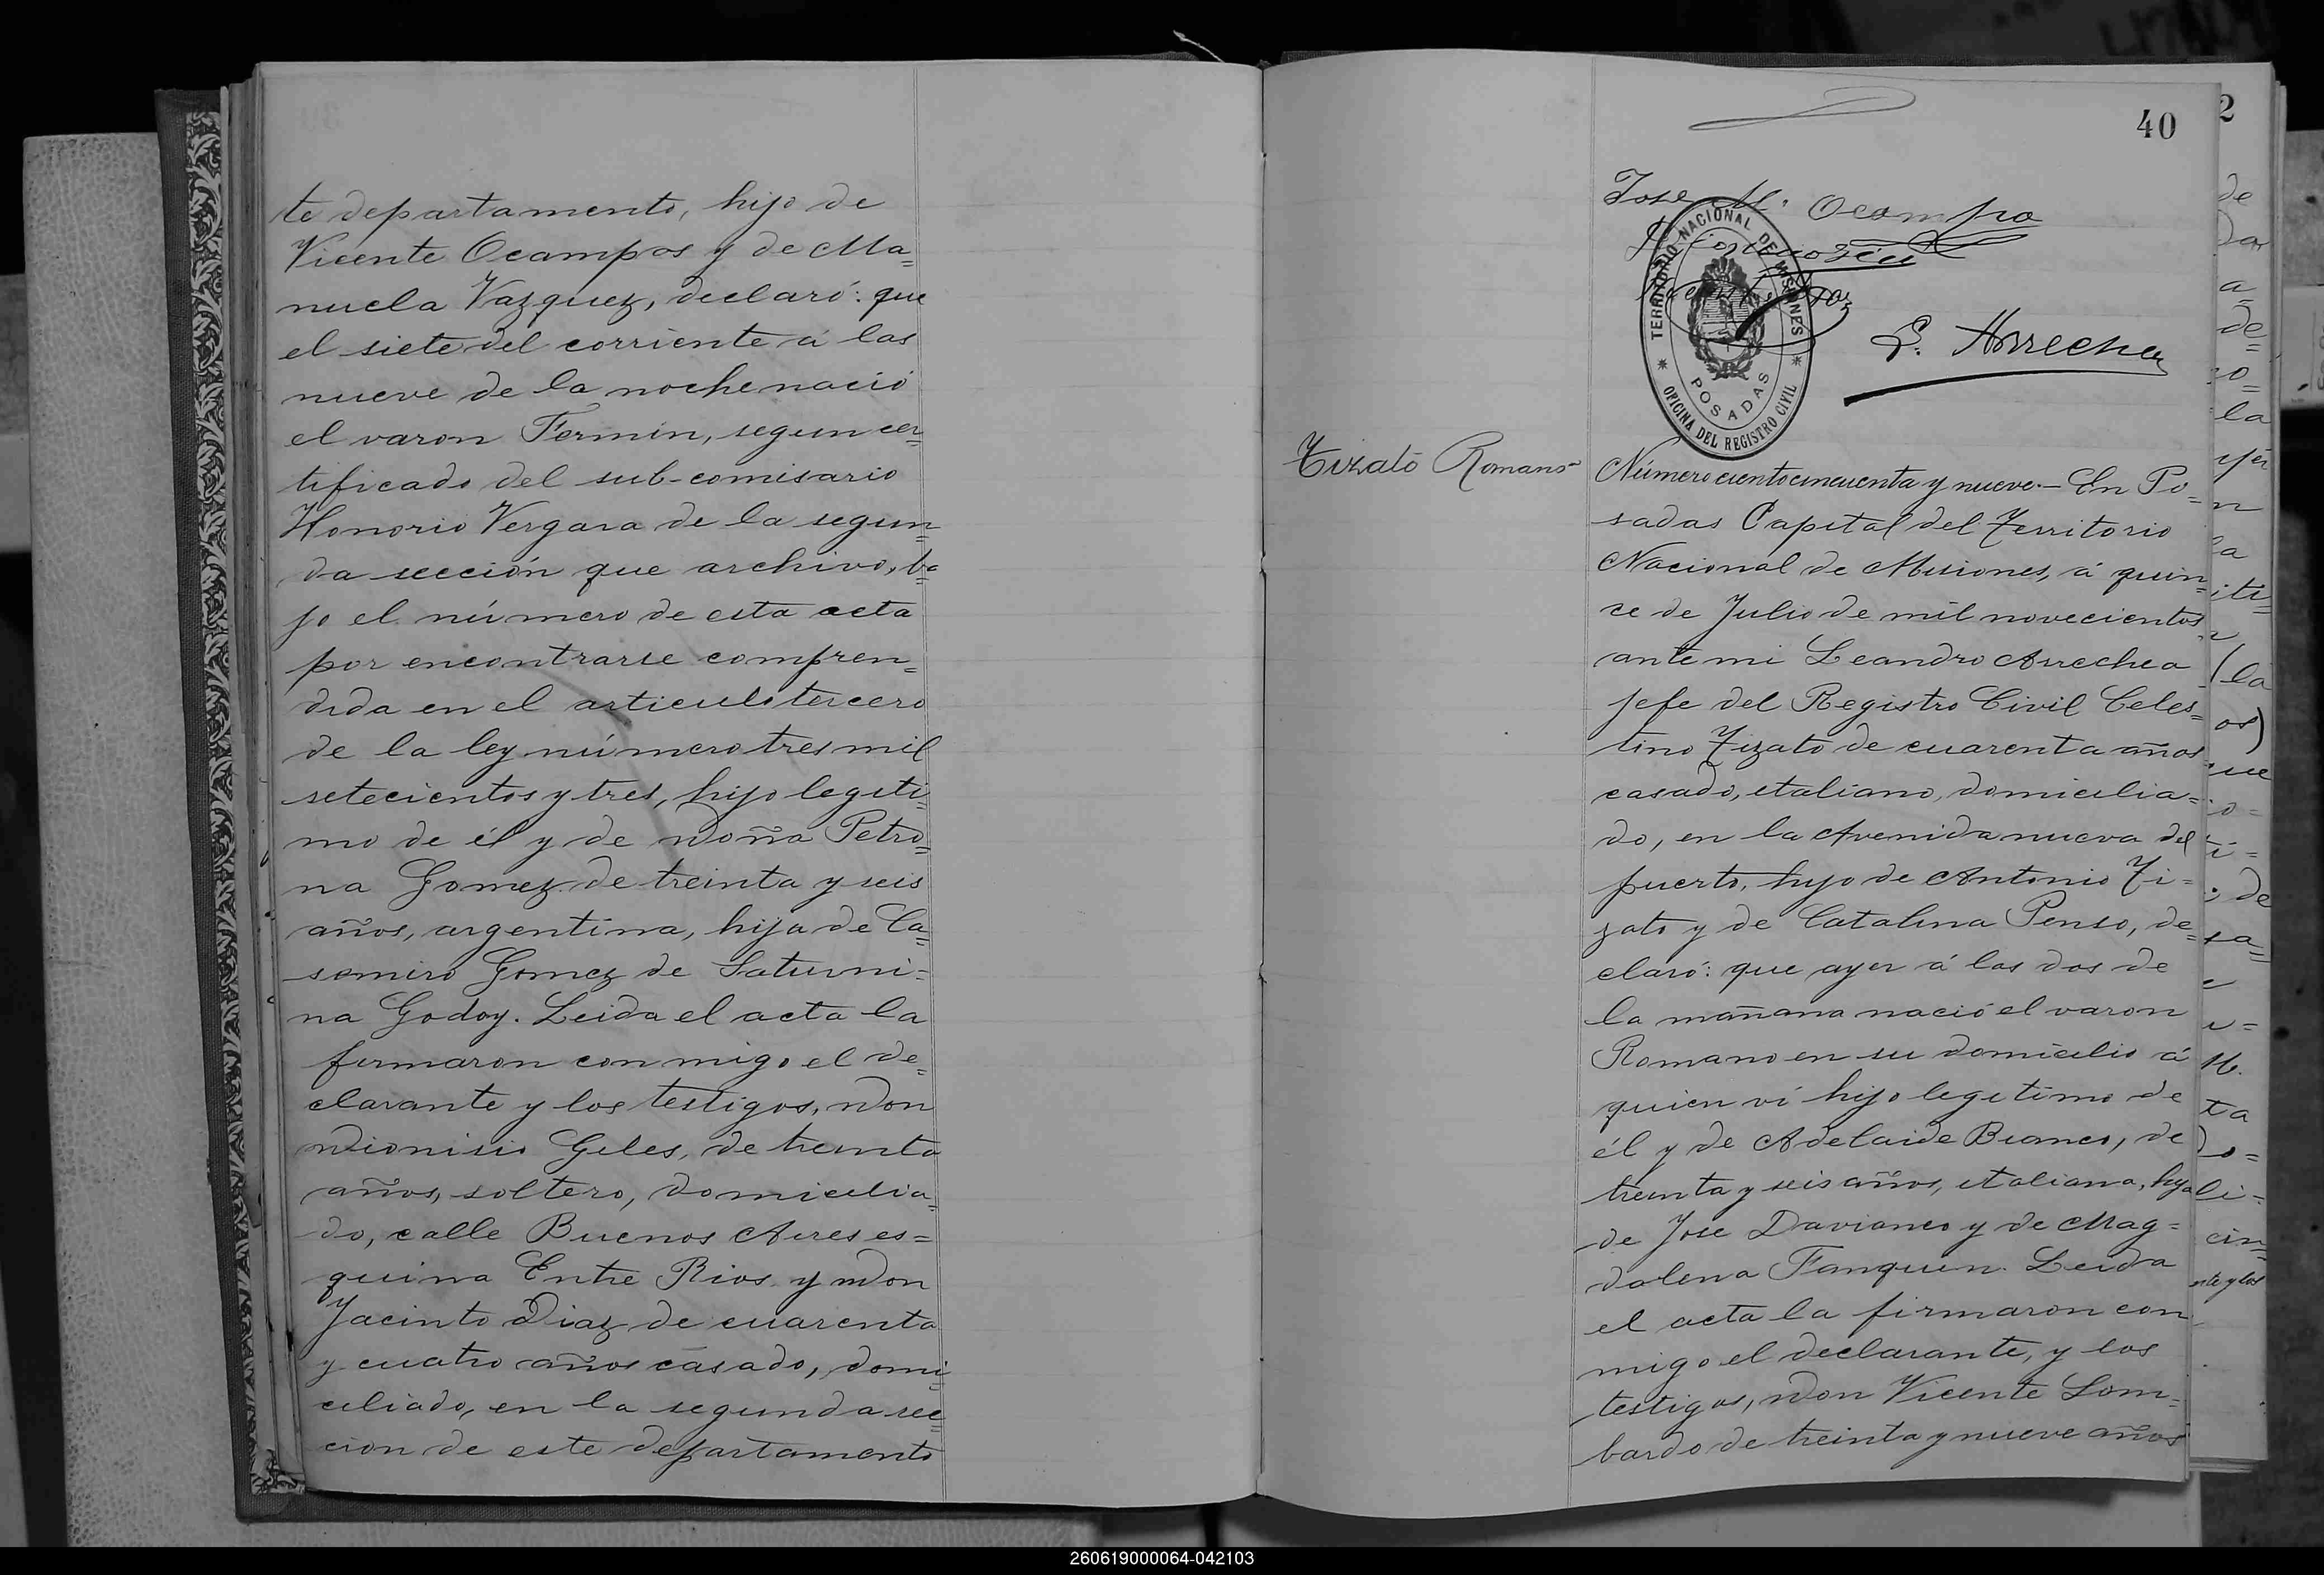 te departamento, hijo de
Vicente Ocampos y de Ma=
nuela Vazquez, declaró: que
el siete del corriente á las
nueve de la noche nació
el varon Fermin, segun cer=
tificado del sub-comisario
Honorio Vergara de la segun=
da sección que archivo, ba=
jo el número de esta acta
por encontrarse compren=
dida en el articulo tercero
de la ley número tres mil
setecientos y tres, hijo legiti=
mo de él y de doña Petro=
na Gomez de treinta y seis
años, argentina, hija de Ca=
somiro Gomez de Saturni=
na Godoy. Leida el acta la
firmaron conmigo el de=
clarante y los testigos, don
Dionisio Geles, de treinta
años, soltero, domicilia=
do, calle Buenos Aires es=
quina Entre Rios y don
Jacinto Diaz de cuarenta
y cuatro años casado, domi=
ciliado, en la segunda sec=
cion de este departamento
40
Jose M. Ocampo
TERRITORIO NACIONAL DE MISIONES
POSADAS
* OFICINA DEL REGISTRO CIVIL *
L. Arrechea
Tizato Romano
Número ciento cincuenta y nueve.- En Po=
sadas Capital del Territorio
Nacional de Misiones, á quin=
ce de Julio de mil novecientos,
ante mi Leandro Arrechea
Jefe del Registro Civil Celes=
tino Tizato de cuarenta años
casado, italiano, domicilia=
do, en la Avenida nueva del
puerto, hijo de Antonio Ti=
zato y de Catalina Penso, de=
claró: que ayer á las dos de
la mañana nació el varon
Romano en su domicilio á
quien ví hijo legitimo de
él y de Adelaide Bianco, de
treinta y seis años, italiana, hija
de Jose Davianco y de Mag=
dalena Fanquin. Leida
el acta la firmaron con
migo el declarante, y los
testigos, don Vicente Lom=
bardo de treinta y nueve años
2
de
a=
de=
la
n
(la
os)
de
M.
ta
do=
li=
cin=
nte y los
260619000064-042103